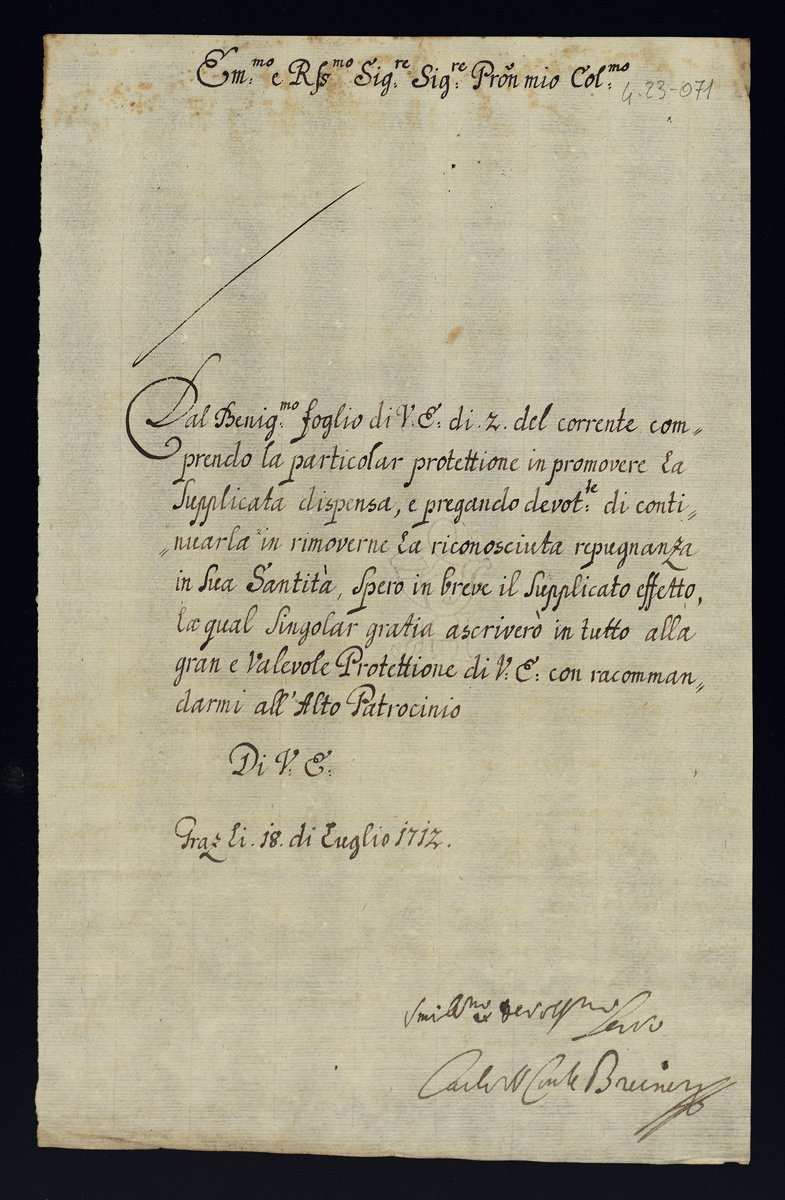 Em:mo e Rss:mo Sig:re Sig:re Prõn mio Col:mo
4.23-071
Dal Benig:mo foglio di V: E: di .2. del corrente com„
prendo la particolar protettione in promovere la
supplicata dispensa, e pregando devot:te di conti„
„nuarla in rimoverne la riconosciuta repugnanza
in sua Santità, spero in breve il supplicato effetto,
la qual singolar gratia ascriverò in tutto alla
gran e valevole Protettione di V: E: con racomman„
darmi all'Alto Patrocinio
Di V: E:
Graz li .18. di Luglio 1712.
Servo
Conte Breiner